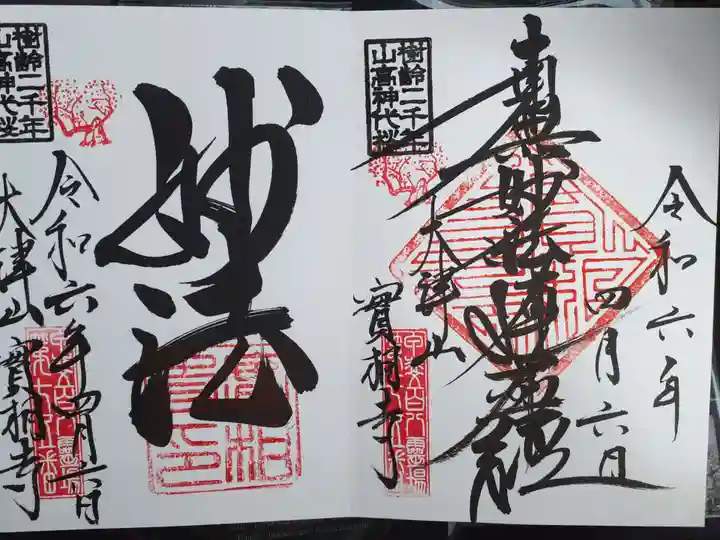 令和六年
四月六日
南無妙法蓮華経
大津山
實相寺
樹齢二千年
山高神代桜
妙法
樹齢二千年
山高神代桜
令和六年四月六日
大津山實相寺